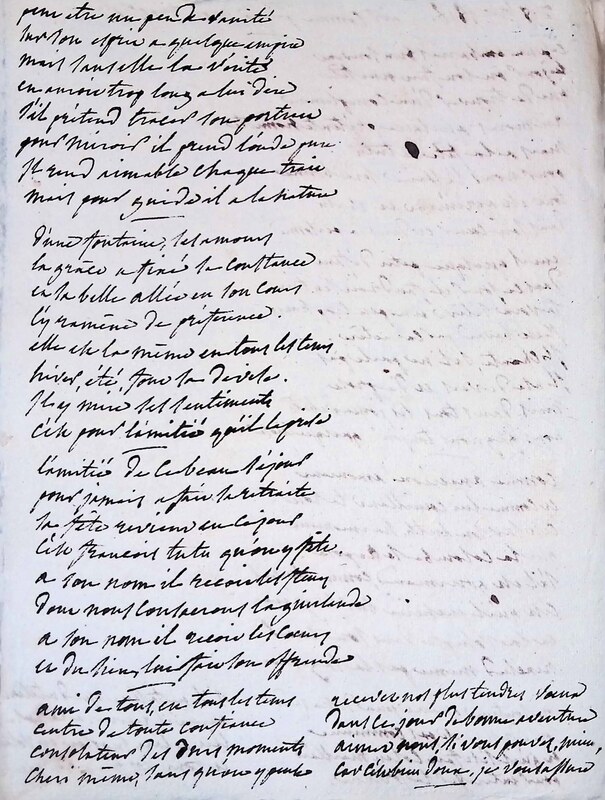 peut etre un peu de vanité
sur son esprit a quelque empire
mais sans elle la vérité
en auroit trop long a lui dire
s'il prétend tracer son portrait
pour miroir il prend l'onde pure
Il rend aimable chaque trait
mais pour guide il a la nature
d'une fontaine, les amours
la grâce a fixé la constance
en la belle allée en son cours
l'y ramène de preference
elle est la même en tous les tems
hiver, été,
Il y mire ses sentiments
c'est pour l'amitié qu'il
l'amitié de ce beau séjour
pour jamais a fait sa retraite
la fête revient en ce jour
c'est françois
a son nom il recoit les fleurs
dont nous conserons la guirlande
a son nom il recoit les coeurs
et du sien, lui fait son offrande
ami de tous, en tous les tems
centre de toute confiance
consolateur des durs moments
cheri même, sans qu'on y pense
recevez nos plus tendres voeux
dans ce jour de bonne aventure
aimez nous, si vous pouvez, mieux,
car c'est bien doux, je vous assure